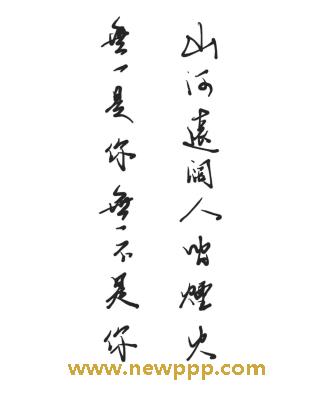 山河遠闊人間煙火
無一是你無一不是你
www.newppp.com